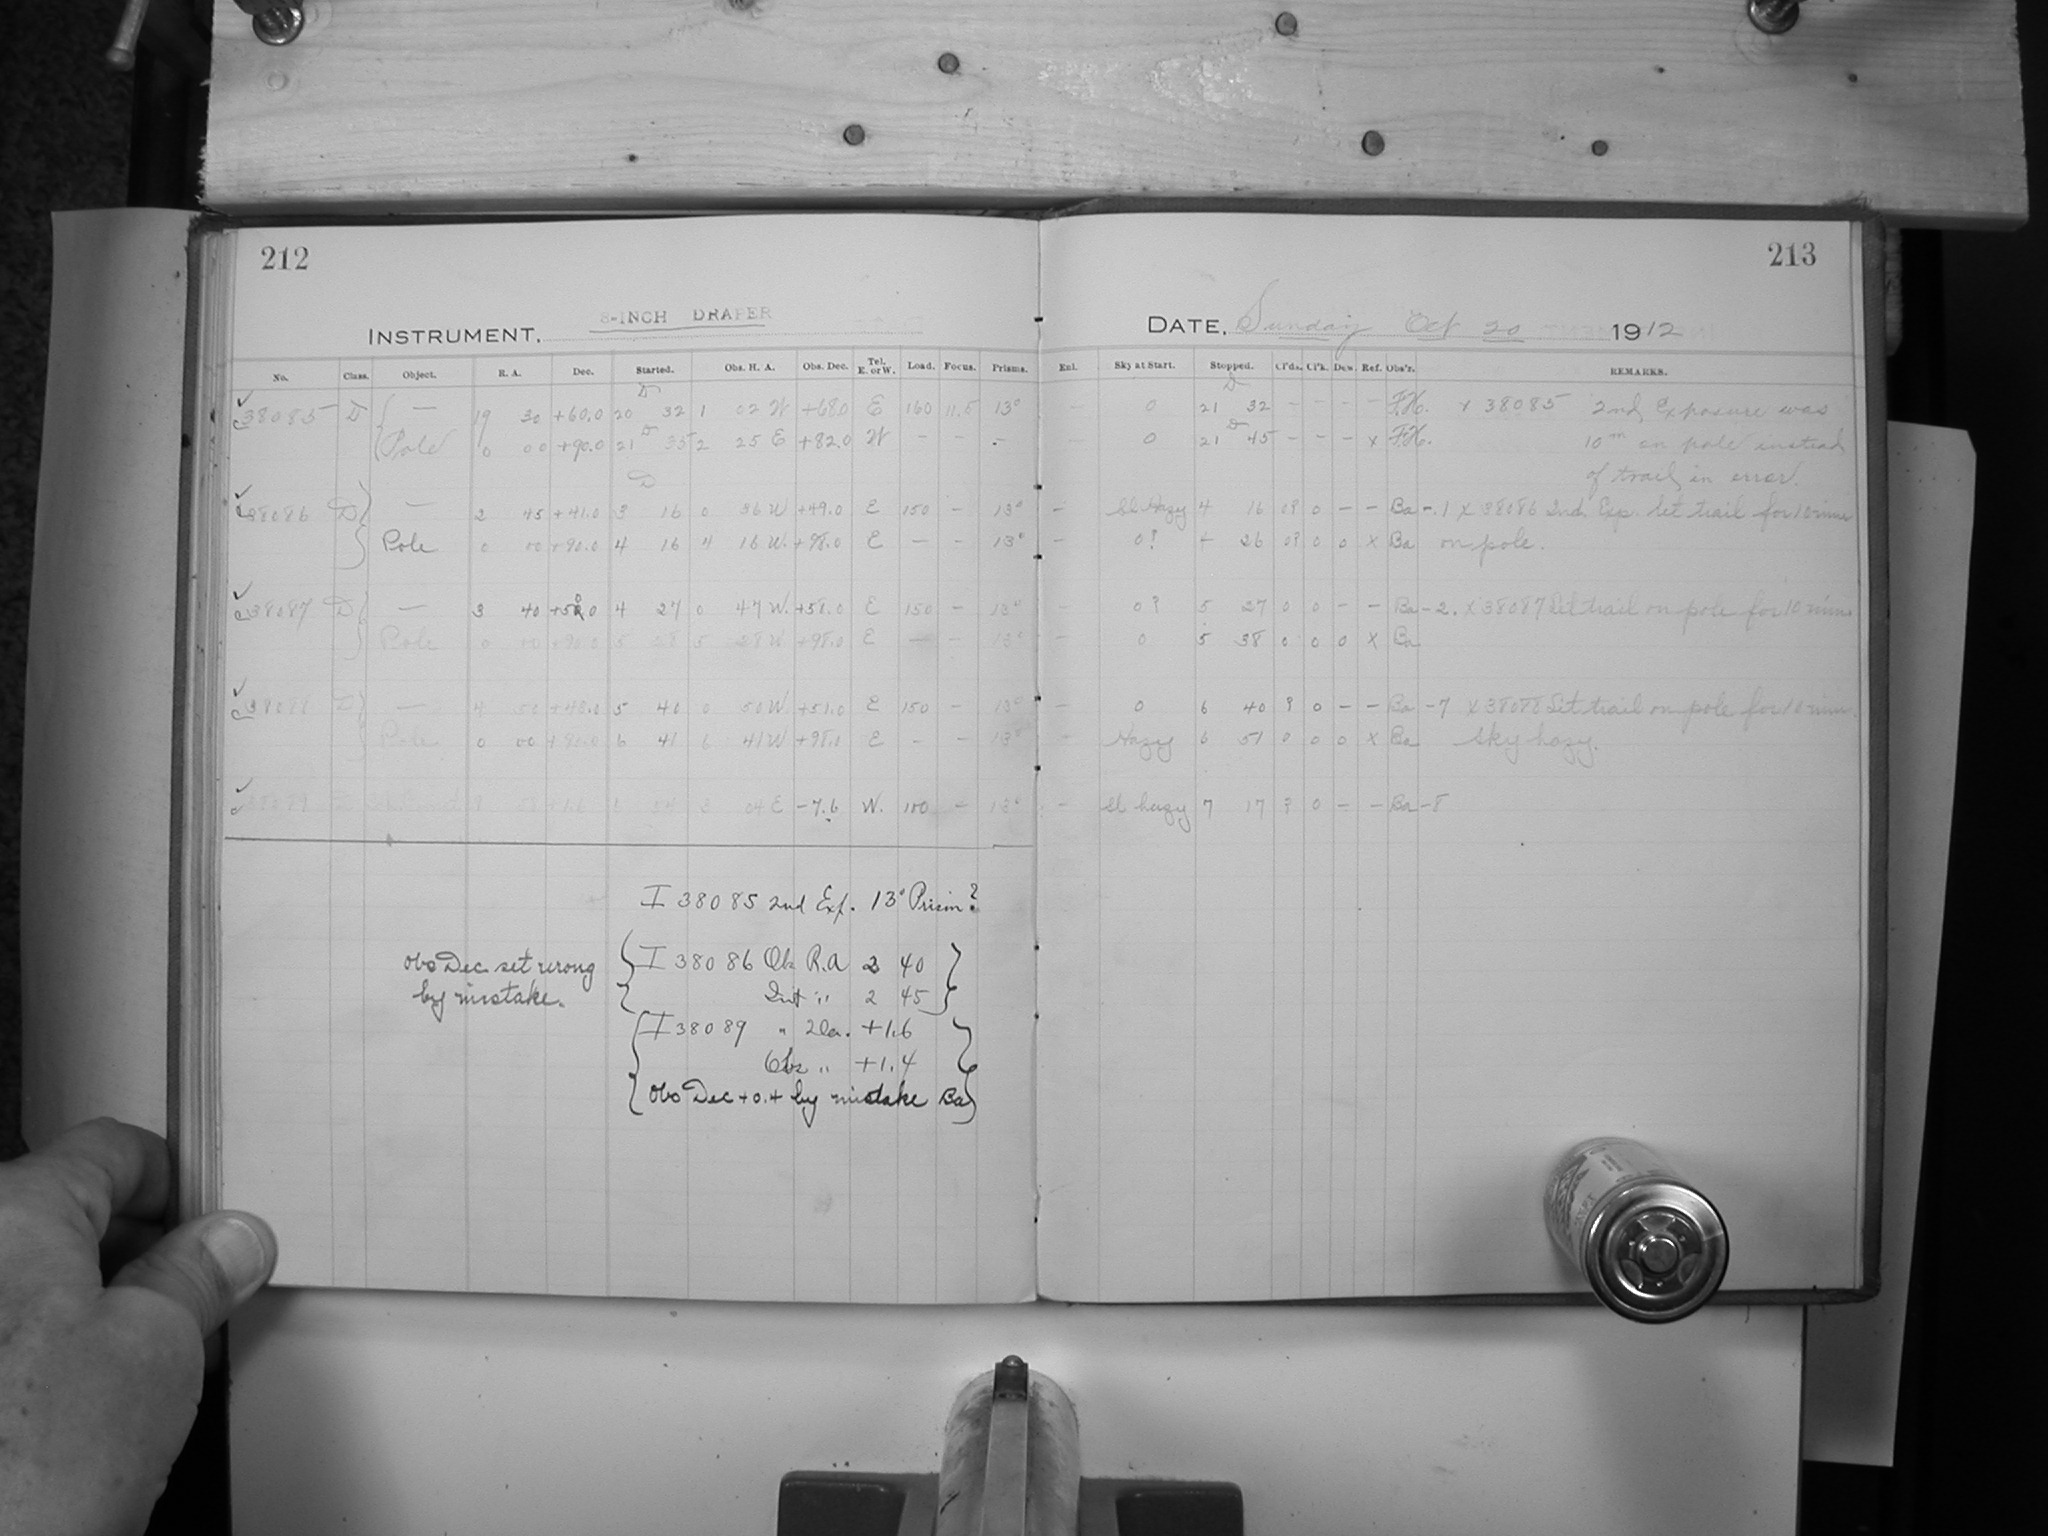 212
213
INSTRUMENT. 8-INCH DRAPER
DATE, Sunday Oct 20 1912
No. Class. Object. R. A. Dec. Started. Obs. H. A. Obs. Dec. Tel. E. or W. Load. Focus. Prisms. Enl. Sky at Start. Stopped. Cl'ds. Cl'k. Dew. Ref. Obs'r. REMARKS.
38085 D — 19 30 +60.0 20 32 1 02 W +68.0 E 160 11.5 13° – 0 21 32 – – – – F.H. x 38085 2nd Exposure was
Pole 0 00 +90.0 21 35 2 25 E +82.0 W – – – – 0 21 45 – – – x F.H. 10m on pole instead
of trail in error.
38086 D — 2 45 +41.0 3 16 0 36 W +49.0 E 150 – 13° – Sl Hazy 4 16 0? 0 – – Ba -.1 x 38086 2nd. Exp. let trail for 10 mins
Pole 0 00 +90.0 4 16 4 16 W. +98.0 E – – 13° – 0? 4 26 0? 0 0 x Ba on pole.
38087 D — 3 40 4 27 0 47 W. +58.0 E 150 – 13° 0? 5 27 0 0 – – Ba -2. x 38087 Let trail on pole for 10 mins
Pole 0 00 +90.0 5 28 5 28 W +98.0 E – – 13° 0 5 38 0 0 0 x Ba
38088 D — 4 50 +48.0 5 40 0 50 W. E 150 – 13° – 0 6 40 ? 0 – – Ba -7 x 38088 Let trail on pole for 10 mins.
Pole 0 00 +90.0 6 41 6 41 W +98.0 E – – 13° – Hazy 6 51 0 0 0 x Ba Sky hazy.
38089 +1.6 3 04 E -7.6 W. – 13° – Sl hazy 7 17 ? 0 – – Ba -8
I 38085 2nd Exp. 13° Prism?
Obs Dec. set wrong
by mistake.
I 38086 Obs R.A 2 40
Int " 2 45
I 38089 " Dec. +1.6
Obs " +1.4
Obs Dec +0.4 by mistake Ba